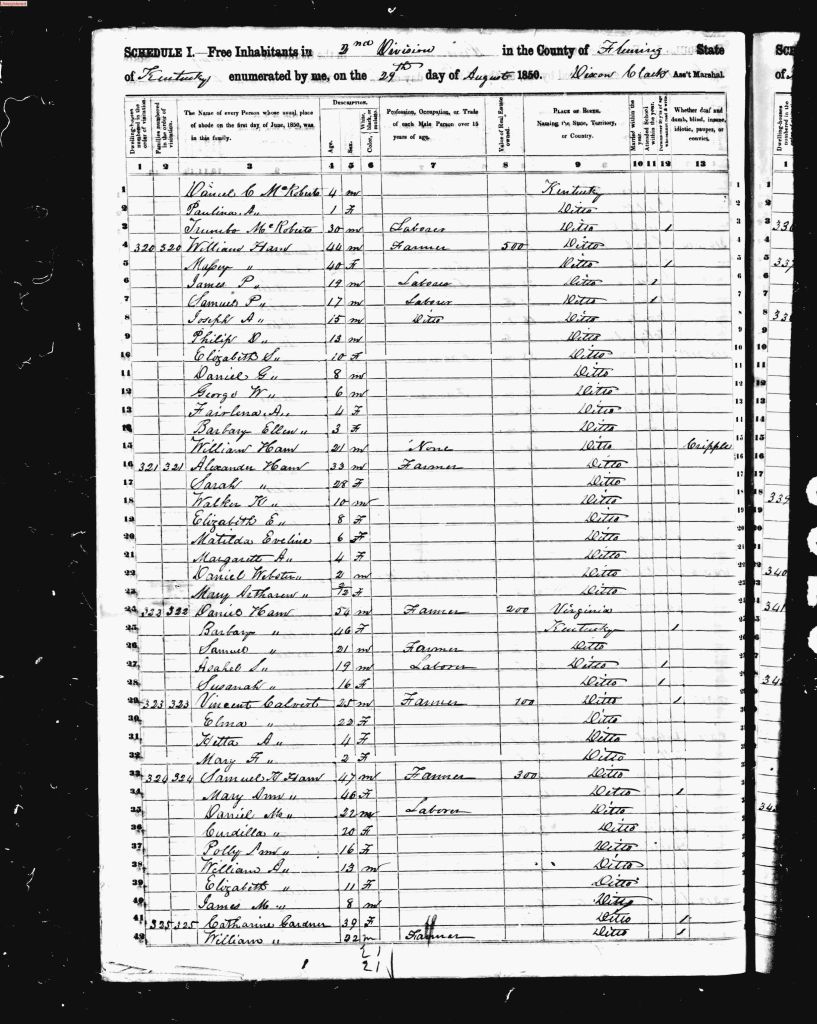 SCHEDULE I.—Free Inhabitants in 2nd Division in the County of Fleming State
of Kentucky enumerated by me, on the 29th day of August 1850. Dixon Clark Ass't Marshal.
Dwelling-houses numbered in the order of visitation.
Families numbered in the order of visitation.
The Name of every Person whose usual place of abode on the first day of June, 1850, was in this family.
DESCRIPTION.
Age.
Sex.
White, black, or mulatto.
Color,
Profession, Occupation, or Trade of each Male Person over 15 years of age.
Value of Real Estate owned.
PLACE OF BIRTH. Naming the State, Territory, or Country.
Married within the year.
Attended School within the year.
Whether deaf and dumb, blind, insane, idiotic, pauper, or convict.
1 2 3 4 5 6 7 8 9 10 11 12 13
1 Daniel C McRoberts 4 m Kentucky 1
2 Paulina A " 1 F Ditto 2
3 Trumbo McRoberts 30 m Laborer Ditto 1 3
4 320 320 William Ham 44 m Farmer 500 Ditto 4
5 " 40 F Ditto 1 5
6 James P " 19 m Laborer Ditto 1 6
7 Samuel P " 17 m Laborer Ditto 1 7
8 Joseph A " 15 m Ditto Ditto 8
9 Philip D " 13 m Ditto 9
10 Elizabeth S " 10 F Ditto 10
11 Daniel G " 8 m Ditto 11
12 George W " 6 m Ditto 12
13 A " 4 F Ditto 13
14 Barbary Ellen " 3 F Ditto 14
15 William Ham 21 m None Ditto Cripple 15
16 321 321 Alexander Ham 33 m Farmer Ditto 16
17 Sarah " 28 F Ditto 17
18 Walker H " 10 m Ditto 18
19 Elizabeth E " 8 F Ditto 19
20 Matilda Eveline 6 F Ditto 20
21 Margarett A " 4 F Ditto 21
22 Daniel Webster " 2 m Ditto 22
23 Mary " F Ditto 23
24 323 322 Daniel Ham 54 m Farmer 200 Virginia 24
25 Barbary " 46 F Kentucky 1 25
26 Samuel " 21 m Farmer Ditto 26
27 Asahel S " 19 m Laborer Ditto 1 27
28 Susanah " 16 F Ditto 1 28
29 323 323 Vincent Calvert 25 m Farmer 100 Ditto 1 29
30 Elma " 22 F Ditto 30
31 Hetta A " 4 F Ditto 31
32 Mary F " 2 F Ditto 32
33 324 324 Samuel H Ham 47 m Farmer 300 Ditto 33
34 Mary Ann " 46 F Ditto 1 34
35 Daniel M " 22 m Laborer Ditto 35
36 Curdilla " 20 F Ditto 36
37 Polly Ann " 16 F Ditto 37
38 William A " 13 m Ditto 38
39 Elizabeth " 11 F Ditto 39
40 James M " 8 m Ditto 40
41 325 325 Catharine Gardner 39 F Ditto 1 41
42 William " 22 m Farmer Ditto 1 42
21
21
SCH
of
1
336
337
339
340
341